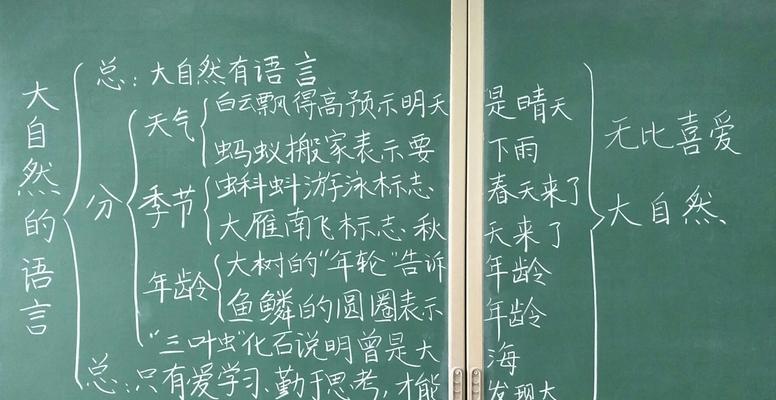 大自然的语言
总：大自然有语言
分
天气
白云飘得高预示明天是晴天
蚂蚁搬家表示要下雨
季节
蝌蚪游泳标志春天来了
大雁南飞标志秋天来了
年龄
大树的“年轮”告诉年龄
鱼鳞的圆圈表示年龄
“三叶虫”化石说明曾是大海
总：只有爱学习、勤于思考，才能发现大
无比喜爱
大自然、